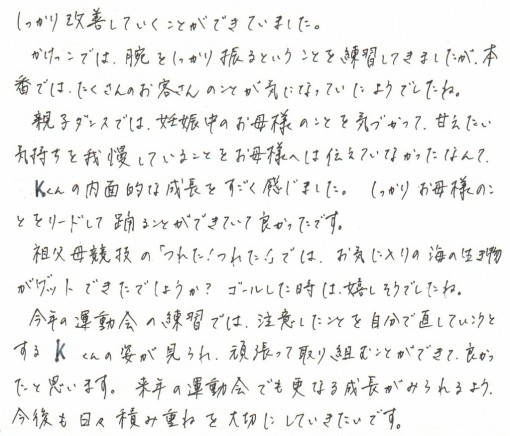 しっかり改善していくことができていました。
かけっこでは、腕をしっかり振るということを練習してきましたが、本
番では、たくさんのお客さんのことが気になっていたようでしたね。
親子ダンスでは、妊娠中のお母様のことを気づかって、甘えたい
気持ちを我慢していることをお母様へは伝えていなかったなんて、
Kくんの内面的な成長をすごく感じました。 しっかりお母様のこ
とをリードして踊ることができていて良かったです。
祖父母競技の「つれた!つれた!」では、お気に入りの海の生き物
がゲットできたでしょうか? ゴールした時は、嬉しそうでしたね。
今年の運動会の練習では、注意したことを自分で直していこうと
する K くんの姿が見られ、頑張って取り組むことができて、良かっ
たと思います。 来年の運動会でも更なる成長がみられるよう、
今後も日々積み重ねを大切にしていきたいです。